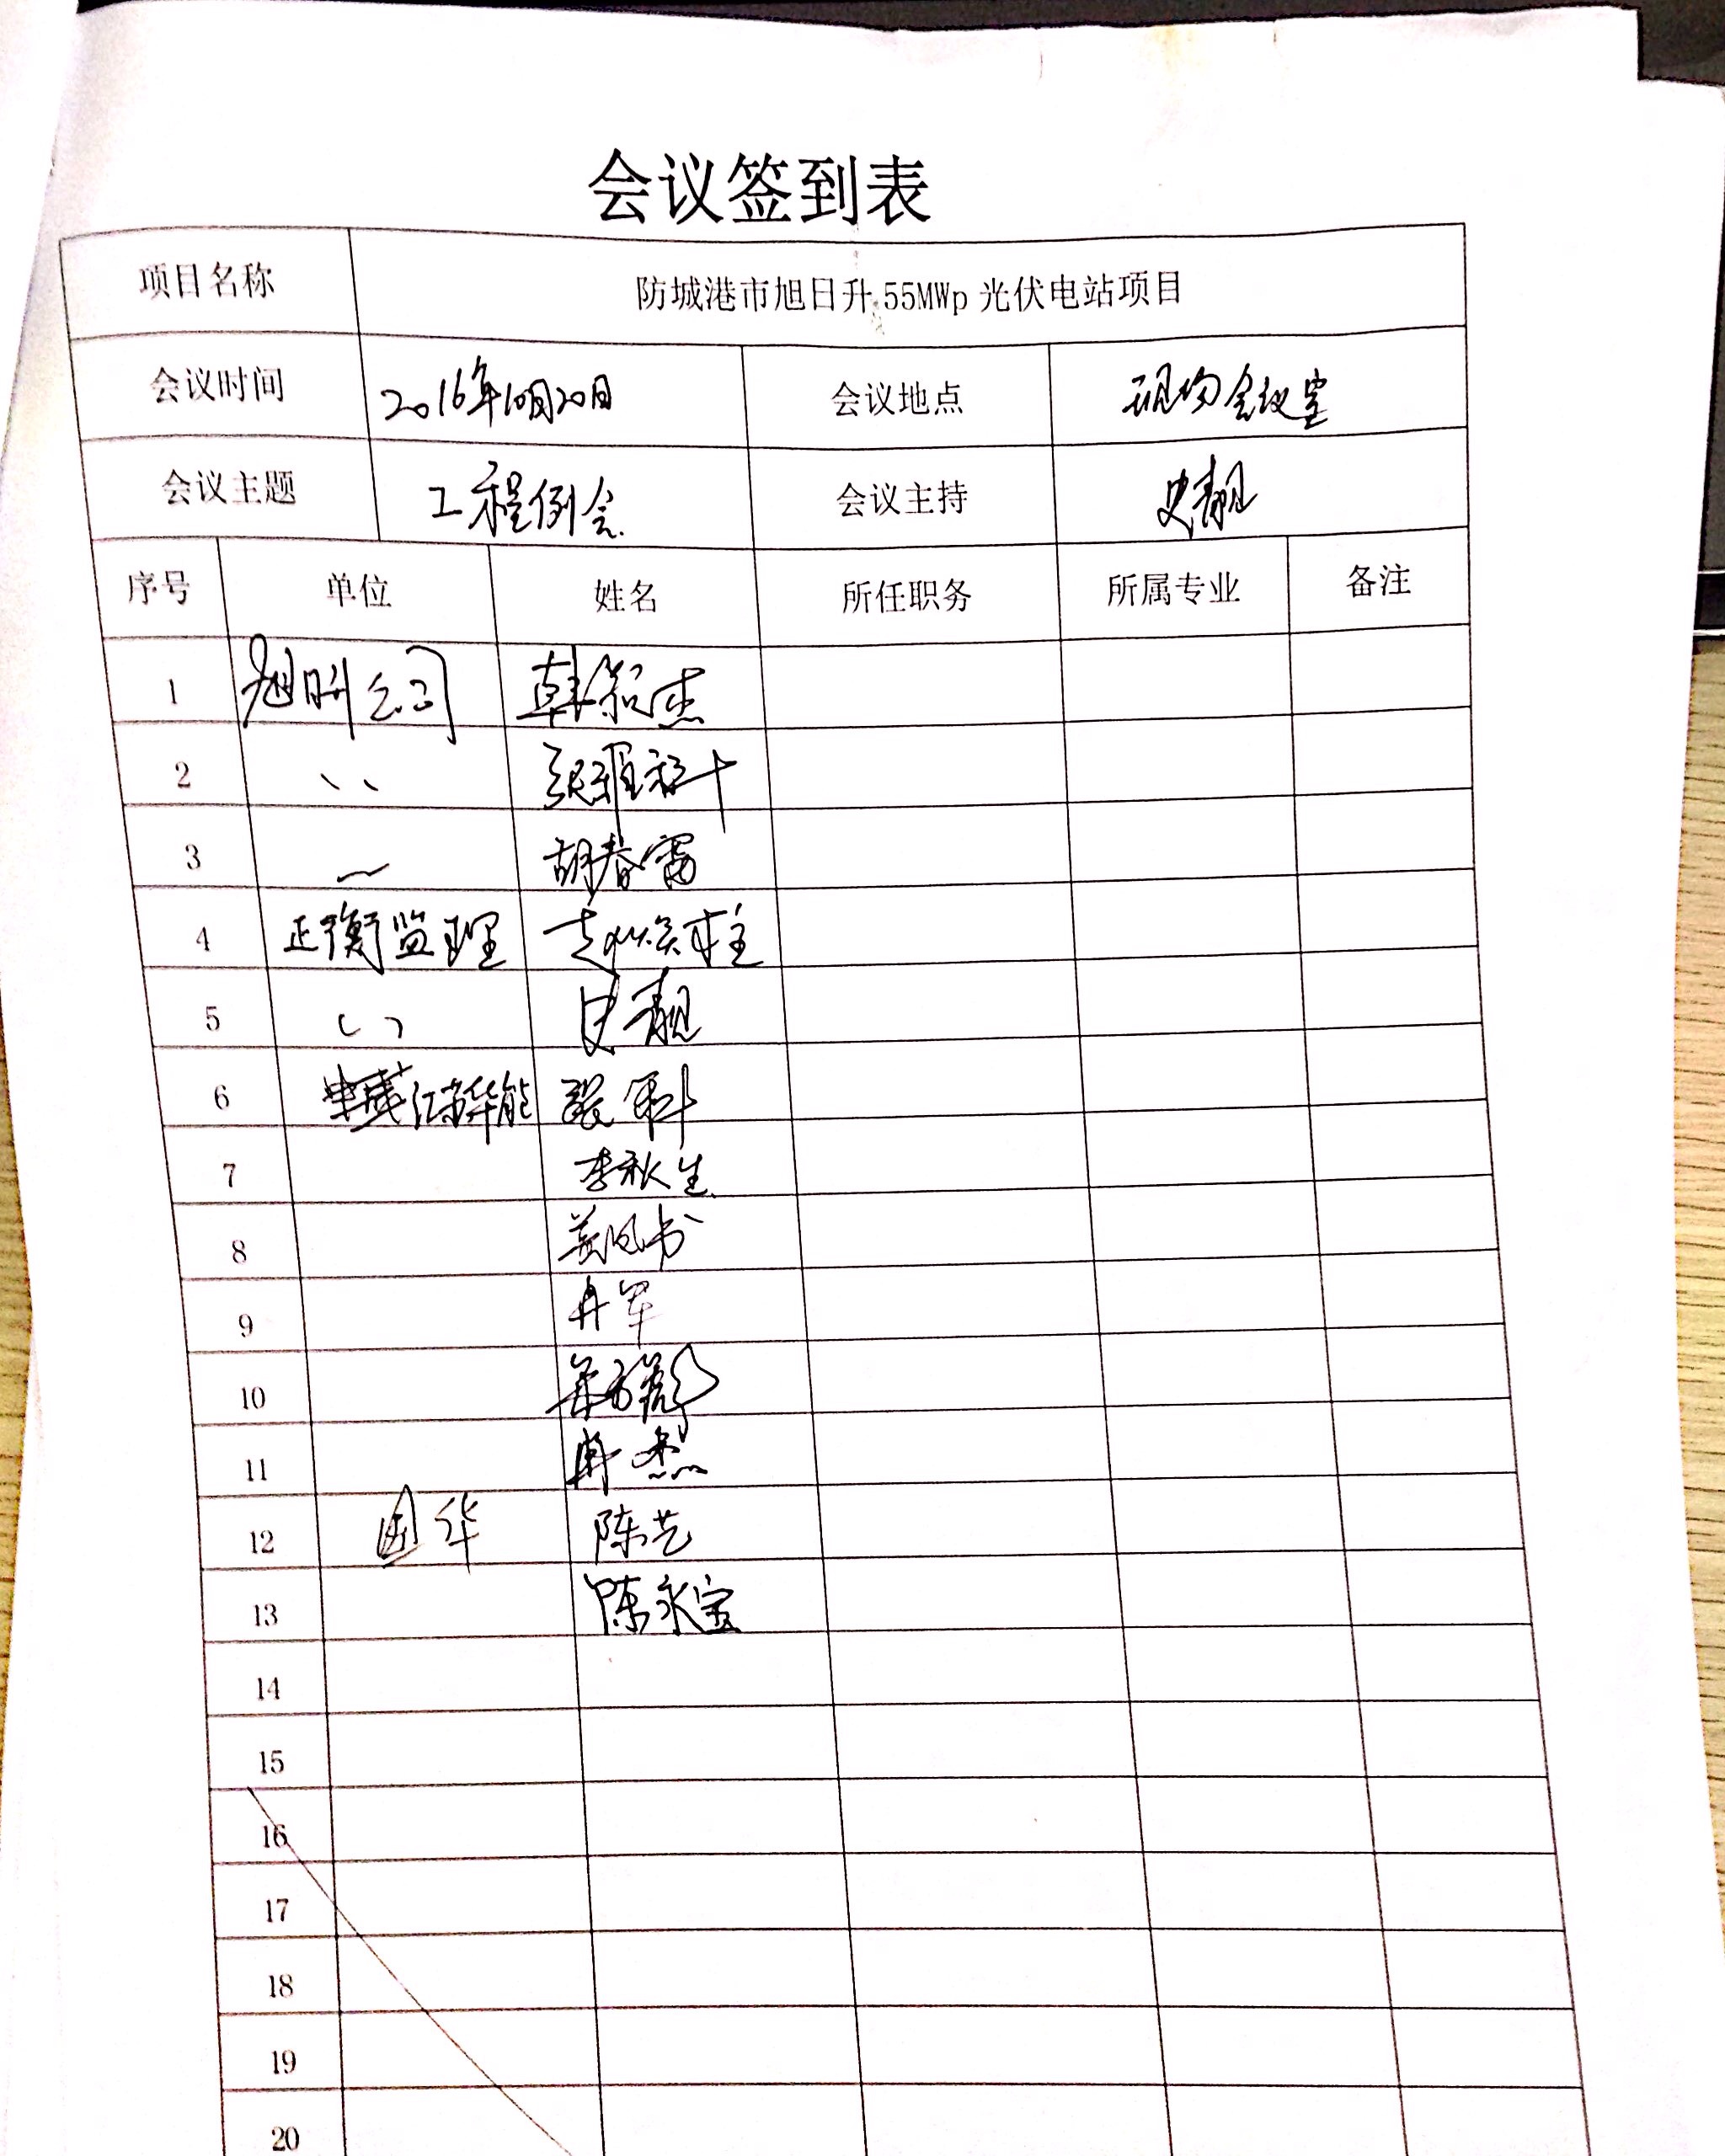 会议签到表
项目名称 防城港市旭日升 55MWp 光伏电站项目
会议时间 2016年10月20日 会议地点 现场会议室
会议主题 工程例会 会议主持 史靓
序号 单位 姓名 所任职务 所属专业 备注
1 公司 韩 杰
2 、、
3 胡春雷
4 正衡监理 赵焕柱
5 史靓
6 江苏华能 张
7 李秋生
8 书
9 冉军
10
11 冉杰
12 国华 陈艺
13 陈永宝
14
15
16
17
18
19
20